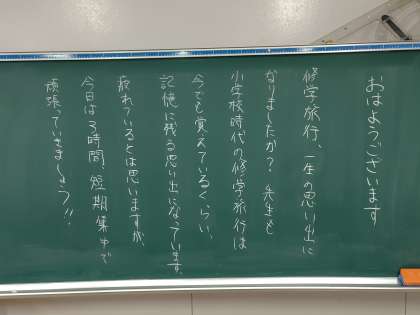 おはようございます
修学旅行、一生の思い出に
なりましたか？先生も
小学校時代の修学旅行は
今でも覚えているくらい、
記憶に残る思い出になっています。
疲れているとは思いますが、
今日は3時間！短期集中で
頑張っていきましょう!!